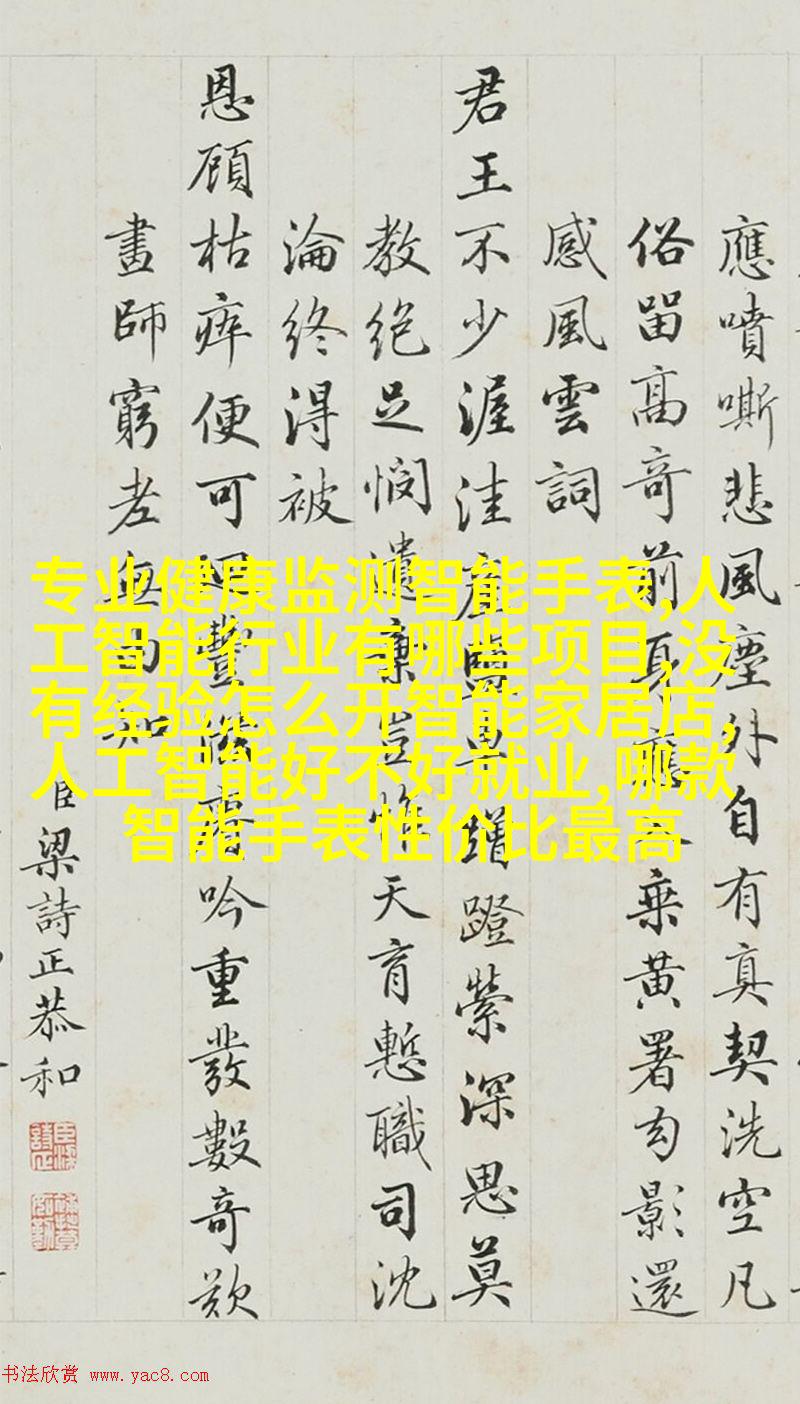 應噴嘶悲風塵外自有真契洗空凡
俗留高奇前身應乘黃署勾影還
感風雲詞
君王不少渥洼產鹽車蹭蹬縈深思莫
教絕足憫遺棄豈惟天育慙職司沈
淪終得被
恩顧枯瘁便可吟重發數奇歎
畫師窮老無
臣梁詩正恭和
专业健康监测智能手表,人
工智能行业有哪些项目,没
有经验怎么开智能家居店,
人工智能好不好就业,哪款
智能手表性价比最高
书法欣赏 www.yac8.com